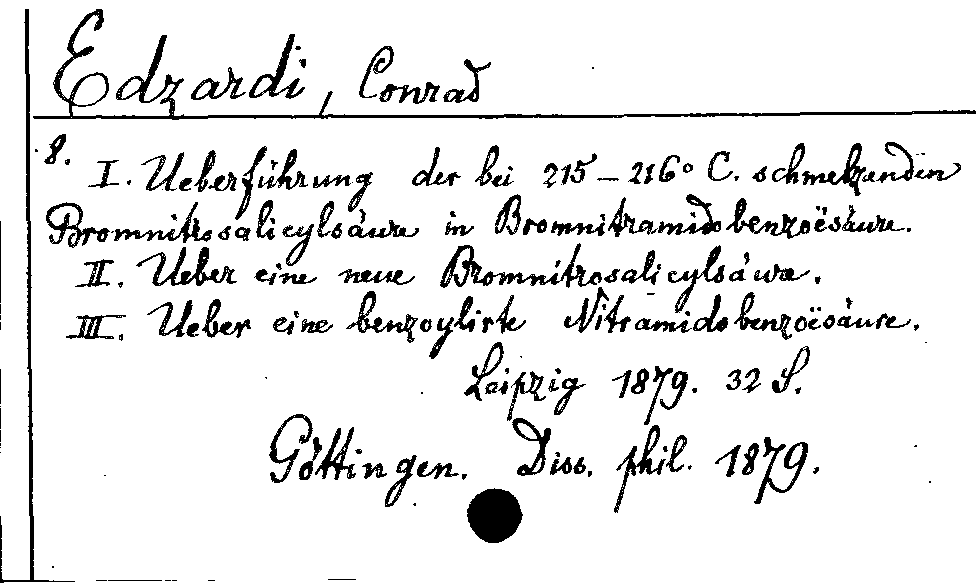 Edzardi, Conrad
8.
I. Ueberführung der bei 215–216° C. schmelzenden
Bromnitrosalicylsäure in Bromnitramidobenzoësäure.
II. Ueber eine neue Bromnitrosalicylsäure.
III. Ueber eine benzoylirte Nitramidobenzoësäure.
Leipzig 1879. 32 S.
Göttingen. Diss. phil. 1879.